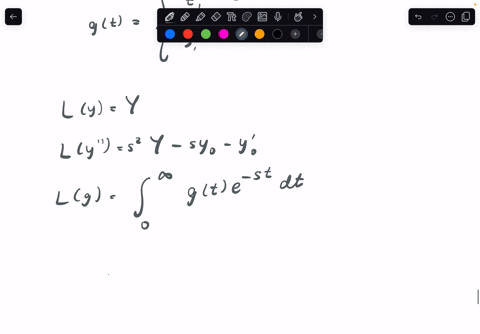 g(t) = { t,
L(y) = Y
L(y'') = s² Y - sy₀ - y₀'
L(g) = ∫₀^∞ g(t) e^{-st} dt